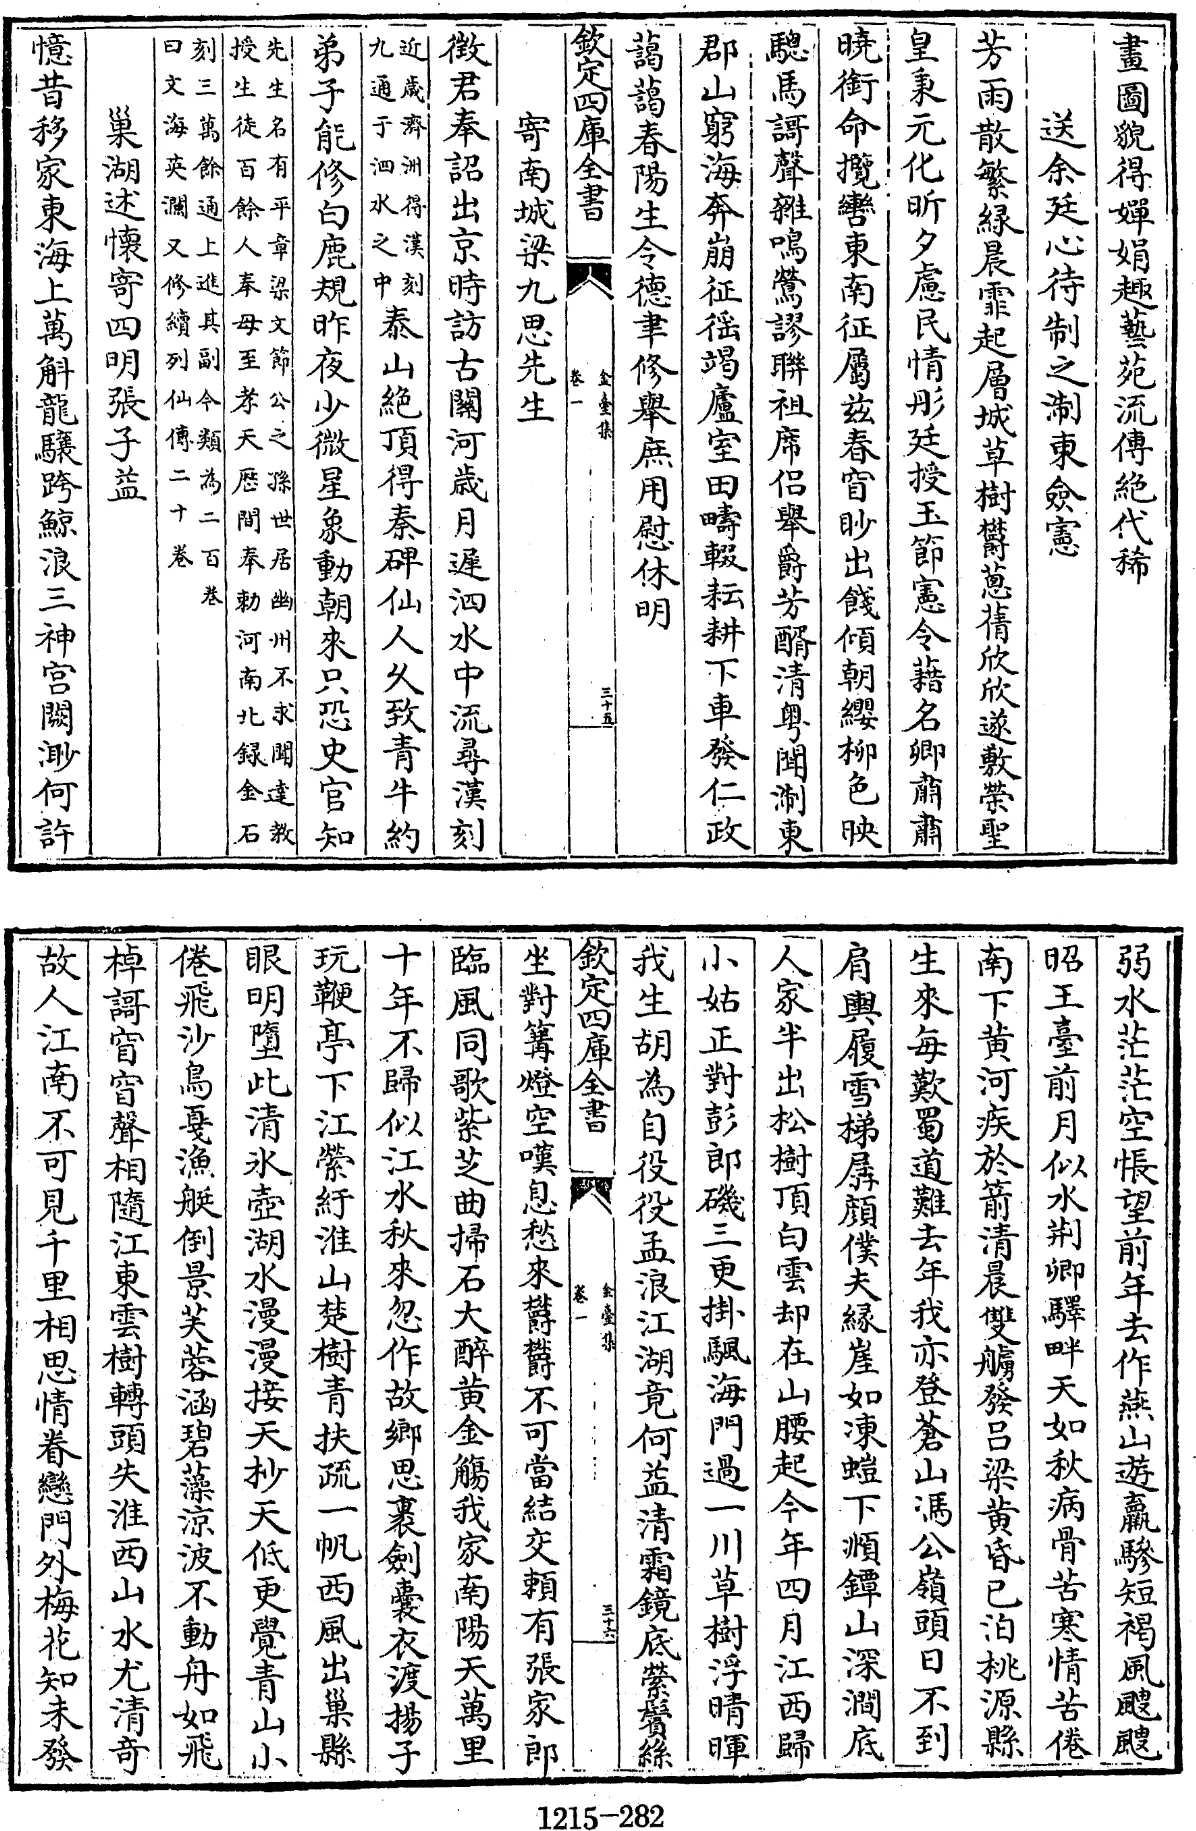 畫圖貌得嬋娟趣藝苑流傳絶代稀
送余廷心待制之淛東僉憲
芳雨散繁緑晨霏起層城草樹欝蔥蒨欣欣遂敷榮聖
皇秉元化昕夕慮民情彤廷授玉節憲令藉名卿肅肅
曉銜命攬轡東南征屬兹春窅眇出餞傾朝纓柳色映
驄馬謌聲雜鳴鶯謬聯祖席侣舉爵芳醑清粤聞淛東
郡山窮海奔崩征徭竭廬室田疇輟耘耕下車發仁政
藹藹春陽生令德聿修舉庶用慰休明
欽定四庫全書
金臺集
卷一
三十五
寄南城梁九思先生
徵君奉詔出京時訪古關河歳月遲泗水中流尋漢刻
近歳濟洲得漢刻
九通于泗水之中
泰山絶頂得秦碑仙人久致青牛約
弟子能修白鹿規昨夜少微星象動朝來只恐史官知
先生名有平章梁文節公之孫世居幽州不求聞達教
授生徒百餘人奉母至孝天歴間奉勅河南北録金石
刻三萬餘通上進其副今類為二百卷
曰文海英瀾又修續列仙傳二十卷
巢湖述懷寄四明張子益
憶昔移家東海上萬斛龍驤跨鯨浪三神宫闕渺何許
弱水茫茫空悵望前年去作燕山遊羸驂短褐風颼颼
昭王臺前月似水荆卿驛畔天如秋病骨苦寒情苦倦
南下黄河疾於箭清晨雙艣發吕梁黄昏已泊桃源縣
生來每歎蜀道難去年我亦登蒼山馮公嶺頭日不到
肩輿履雪梯孱顔僕夫縁崖如凍螘下瀕鐔山深澗底
人家半出松樹頂白雲却在山腰起今年四月江西歸
小姑正對彭郎磯三更掛颿海門過一川草樹浮晴暉
我生胡為自役役孟浪江湖竟何益清霜鏡底縈鬢絲
欽定四庫全書
金臺集
卷一
三十六
坐對篝燈空嘆息愁來欝欝不可當結交賴有張家郎
臨風同歌紫芝曲掃石大醉黄金觴我家南陽天萬里
十年不歸似江水秋來忽作故鄉思裹劍囊衣渡揚子
玩鞭亭下江縈紆淮山楚樹青扶疏一帆西風出巢縣
眼明墮此清氷壺湖水漫漫接天抄天低更覺青山小
倦飛沙鳥戞漁艇倒景芙蓉涵碧藻涼波不動舟如飛
棹謌窅窅聲相隨江東雲樹轉頭失淮西山水尤清奇
故人江南不可見千里相思情眷戀門外梅花知未發
1215-282